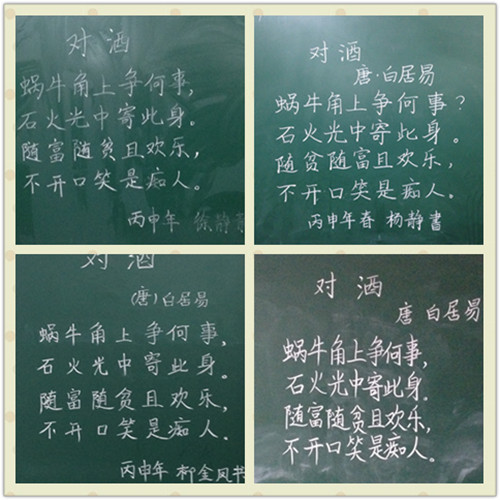 对酒
蜗牛角上争何事,
石火光中寄此身。
随富随贫且欢乐,
不开口笑是痴人。
丙申年 徐静
对酒
唐·白居易
蜗牛角上争何事?
石火光中寄此身。
随贫随富且欢乐,
不开口笑是痴人。
丙申年春 杨静書
对酒
(唐)白居易
蜗牛角上争何事,
石火光中寄此身。
随富随贫且欢乐,
不开口笑是痴人。
丙申年 柳金凤书
对酒
唐 白居易
蜗牛角上争何事,
石火光中寄此身。
随富随贫且欢乐,
不开口笑是痴人。